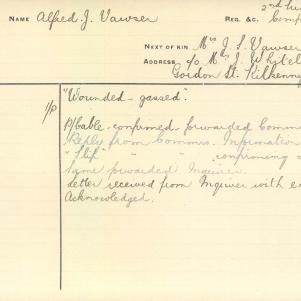 NAME Alfred J. Vawser
REG. &C.
NEXT OF KIN Mrs J. S. Vawser
ADDRESS c/o Mrs J. Whitel
Gordon St. Kilkenny
"Wounded - gassed".
P/bable - confirmed - forwarded Comm
Reply from Commis. Information
"Slip" " " confirming
Same forwarded Inquirer.
Letter received from Inquirer with en
Acknowledged.